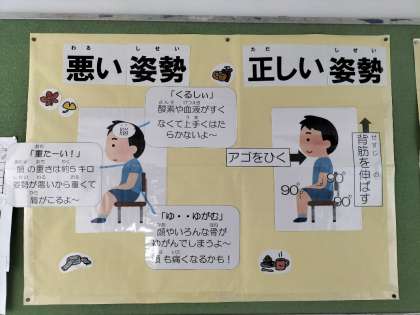 悪い 姿勢
わる しせい
「くるしぃ」
酸素や血液がすく
さんそ けつえき
なくて上手くはた
らかないよ～
脳
「重たーい!」
おも
頭の重さは約5キロ
姿勢が悪いから重くて
肩がこるよ～
「ゆ・・ゆがむ」
顔やいろんな骨が
ゆがんでしまうよ～
頭も痛くなるかも!
正しい 姿勢
ただ しせい
アゴをひく
背筋を伸ばす
90°
90°
90°